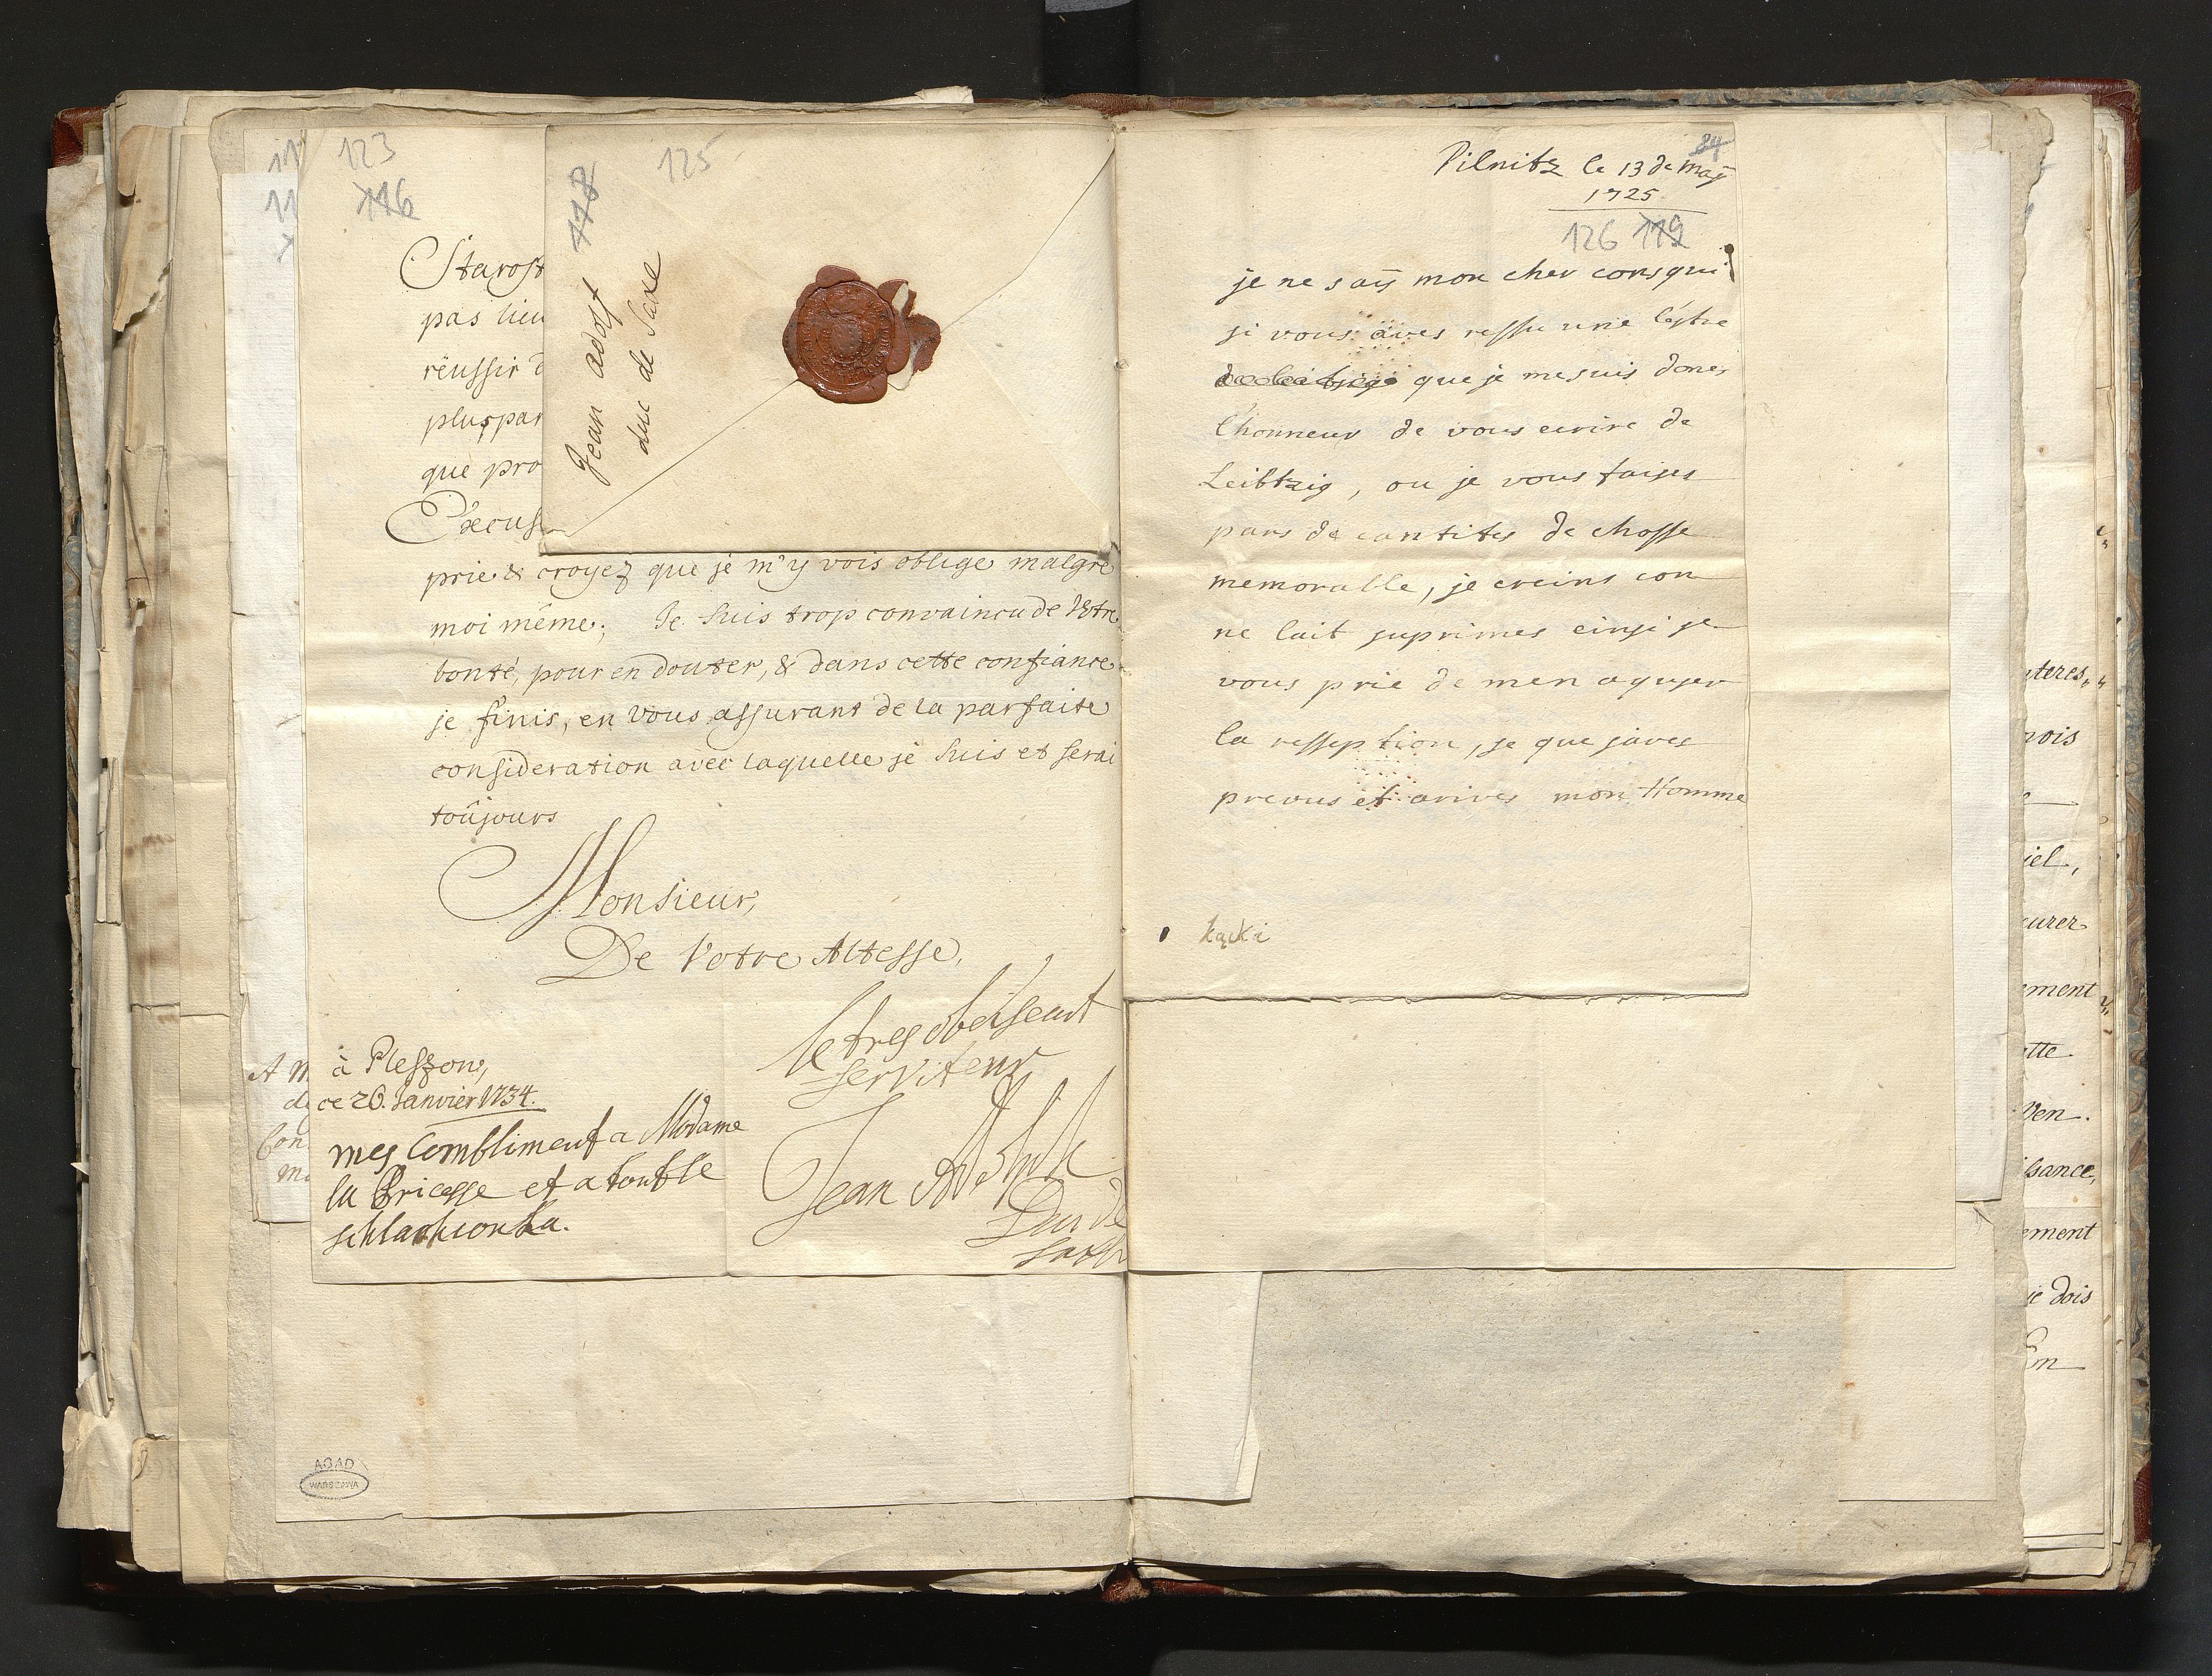 123
116
Starost
pas lieu
réussir d
plus par
que pro
Excus
prie & croyez que je m'y vois obligé malgré
moi même; Je suis trop convaincu de Vôtre
bonté, pour en douter, & dans cette confiance
je finis, en Vous assurant de la parfaite
consideration avec laquelle je suis et serai
toûjours
Monsieur,
De Votre Altesse,
le tres obeiseant
serviteur
Jean Adolf
Duc de
Saxe
à Pleszow,
ce 20. Janvier 1734.
mes Combliment a Madame
la Pricesse et a toutte
schlachconka.
125
118
Jean Adolf
duc de Saxe
84
Pilnitz le 13 de may
1725
126 119
je ne sais mon cher consqui
si vous aves ressu une lestre
que je me suis dones
l'honneur de vous ecrire de
Leibtzig, ou je vous faises
pars de cantites de chosse
memorable, je creins con
ne lait suprimes einsi je
vous prie de men aquser
la resseption, se que javes
prevus et arives mon Homme
Kącki
A M
de
Con
interes,,
nois
iel,
curer
ement
ette
Ven.
isance,
ement
je dois
En
AGAD
WARSZAWA